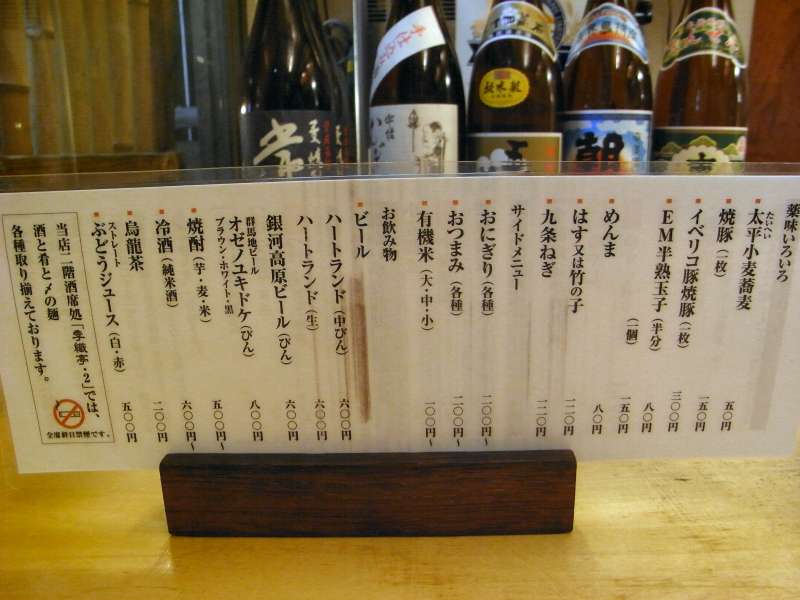 薬味いろいろ
たいへい
太平小麦蕎麦 五〇円
焼豚(一枚) 一五〇円
イベリコ豚焼豚(一枚) 三〇〇円
EM半熟玉子(半分) 八〇円
(一個) 一五〇円
めんま 八〇円
はす又は竹の子 一二〇円
九条ねぎ 一二〇円
サイドメニュー
おにぎり(各種) 二〇〇円〜
おつまみ(各種) 二〇〇円〜
有機米(大・中・小) 一〇〇円〜
お飲み物
ビール
ハートランド(中びん) 六〇〇円
ハートランド(生) 六〇〇円
銀河高原ビール(びん) 六〇〇円
群馬地ビール
オゼノユキドケ(びん) 八〇〇円
ブラウン・ホワイト・黒
焼酎(芋・麦・米) 五〇〇円〜
冷酒(純米酒) 六〇〇円〜
烏龍茶 二〇〇円
ストレート
ぶどうジュース(白・赤) 五〇〇円
当店二階酒席処「季織亭・2」では、
酒と肴と〆の麺
各種取り揃えております。
全席終日禁煙です。